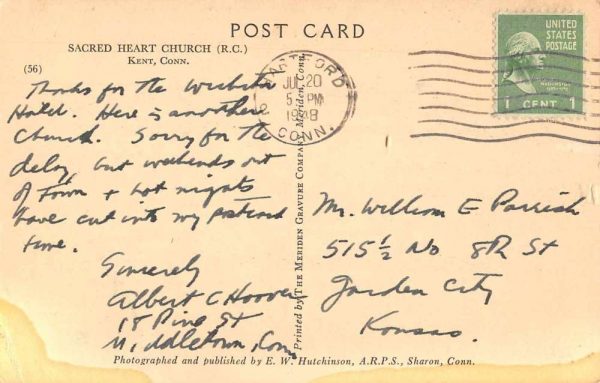 POST CARD
SACRED HEART CHURCH (R.C.)
KENT, CONN.
(56)
Thanks for the Wichita
Hotel. Here is another
Church. Sorry for the
delay, but weekends out
of town + hot nights
have cut into my postcard
time.
Sincerely
Albert C Hoover
18 Pine St
Middletown, Conn
HARTFORD
JUL 20
5 PM
1948
CONN.
UNITED
STATES
POSTAGE
WASHINGTON
1 CENT 1
Printed by THE MERIDEN GRAVURE COMPANY, Meriden, Conn.
Mr. William E Parrish
515 1/2 No 8th St
Garden City
Kansas.
Photographed and published by E. W. Hutchinson, A.R.P.S., Sharon, Conn.